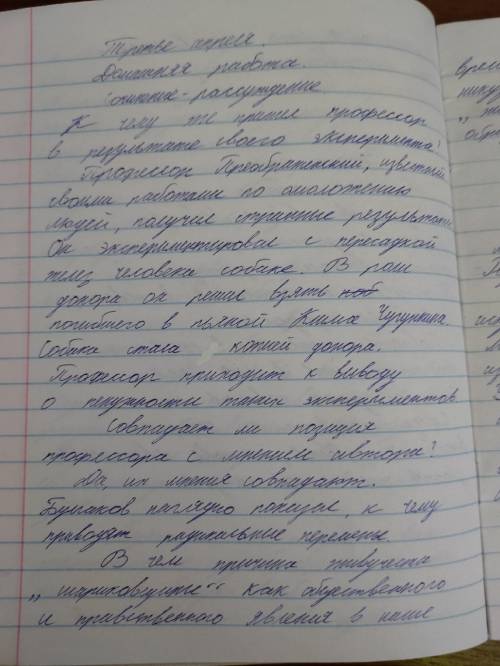 Третье апреля.
Домашняя работа.
Сочинение-рассуждение
К чему же пришел профессор
в результате своего эксперимента?
Профессор Преображенский, известный
своими работами по омоложению
людей, получил странные результаты
Он экспериментировал с пересадкой
желез человека собаке. В роли
донора он решил взять
погибшего в пьяной Клима Чугункина.
Собака стала копией донора.
Профессор приходит к выводу
о ненужности таких экспериментов
Совпадает ли позиция
профессора с мнением автора?
Да, их мнения совпадают.
Булгаков наглядно показал, к чему
приводят радикальные перемены.
В чем причина живучести
„шариковщины“ как общественного
и нравственного явления в наше